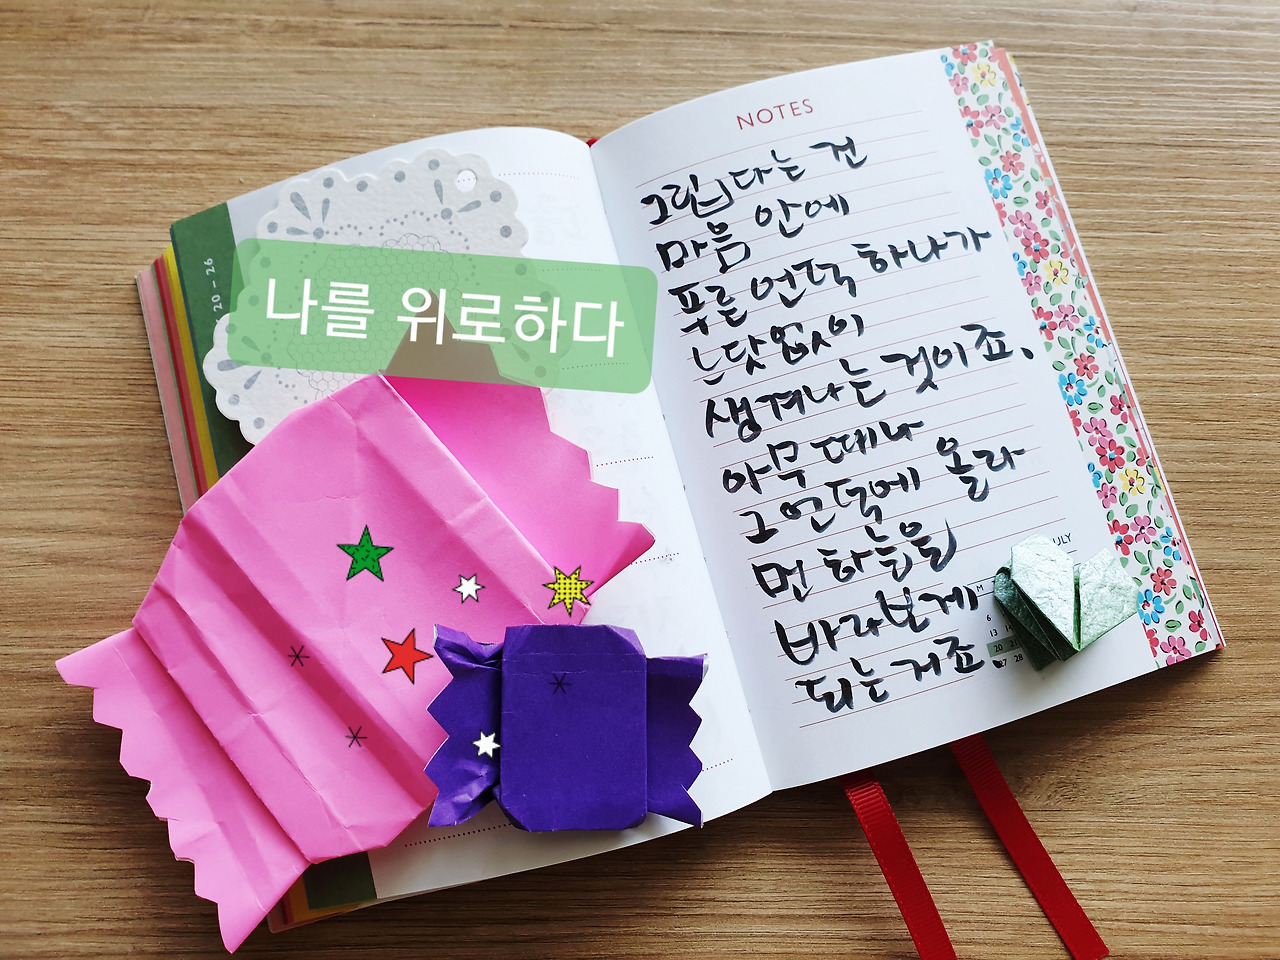 NOTES
그립다는 건
마음 안에
푸른 언덕 하나가
느닷없이
생겨나는 것이죠.
아무 때나
그 언덕에 올라
먼 하늘을
바라보게
되는 거죠.
나를 위로하다
20 - 26
ULY
M
6
13
20
27 28